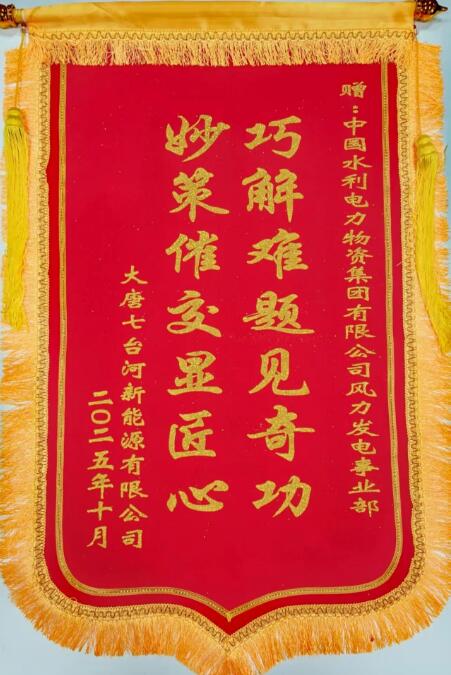 赠:中国水利电力物资集团有限公司风力发电事业部
巧解难题见奇功
妙策催交显匠心
大唐七台河新能源有限公司
二〇二五年十月